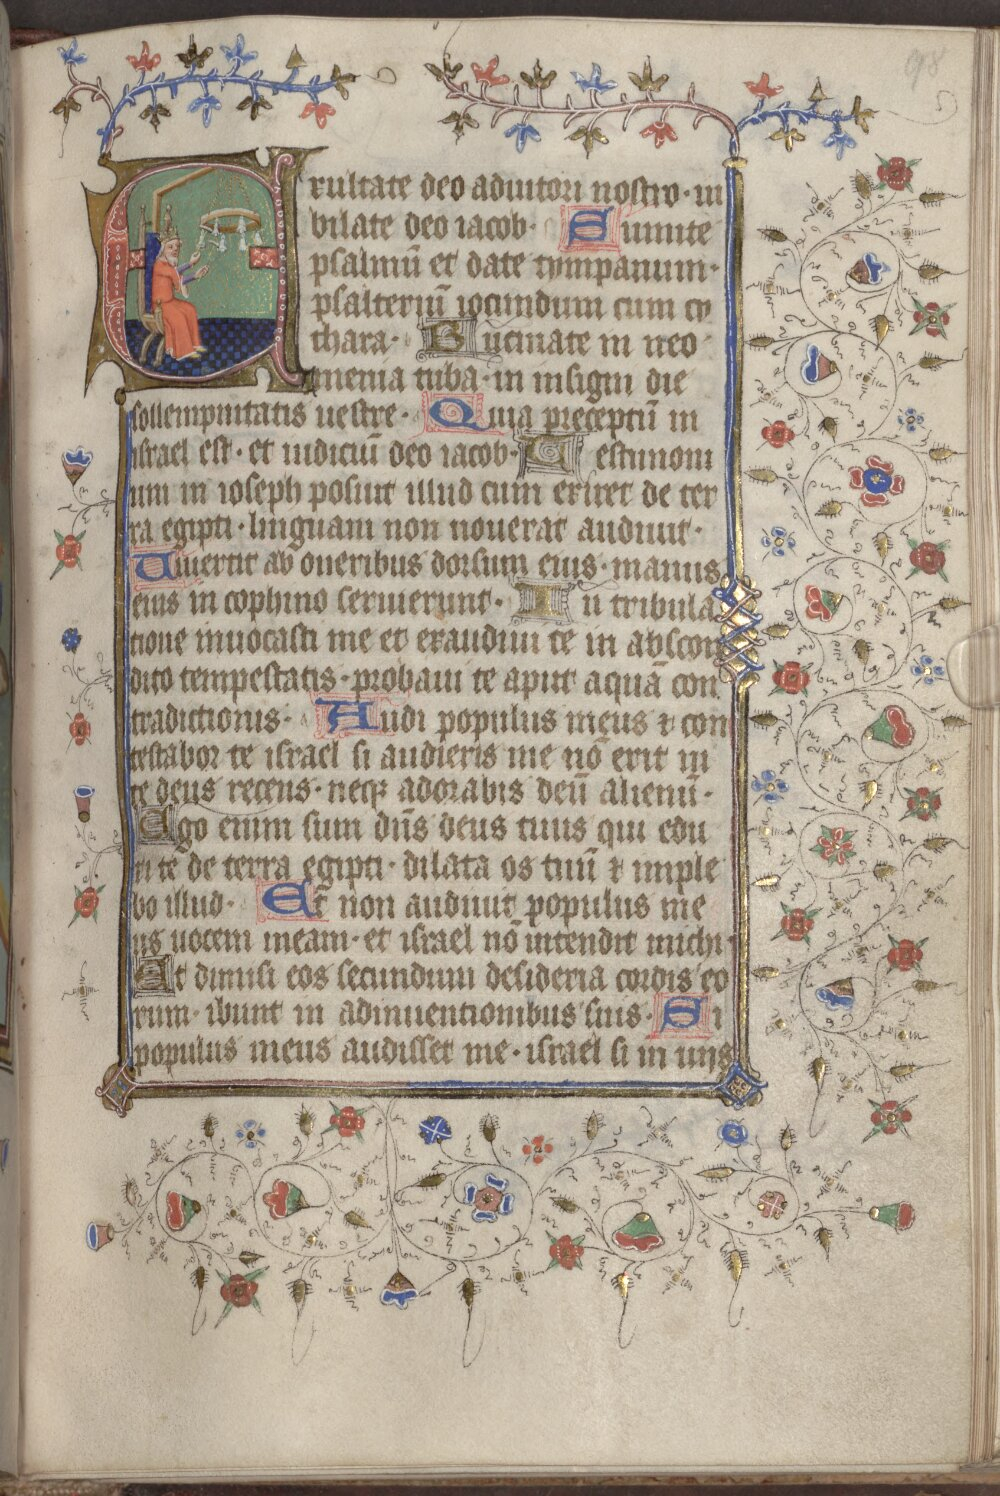 98
Exultate deo adiutori nostro · iu
bilate deo iacob · Sumite
psalmū et date tympanum ·
psalteriū iocundum cum cy
thara · Bucinate in neo
menia tuba · in insigni die
sollempnitatis uestre · Quia preceptū in
israel est · et iudiciū deo iacob · Testimoni
um in ioseph posuit illud cum exiret de ter
ra egipti · linguam non nouerat audiuit ·
Auertit ab oneribus dorsum eius · manus
eius in cophino seruierunt · In tribula
tione inuocasti me et exaudiui te in abscon
dito tempestatis · probaui te aput aquā con
tradictionis · Audi populus meus ⁊ con
testabor te israel si audieris me nō erit in
te deus recens · neqꝫ adorabis deū alienū ·
Ego enim sum dn̄s deus tuus qui edu
xi te de terra egipti · dilata os tuū ⁊ imple
bo illud · Et non audiuit populus me
us uocem meam · et israel nō intendit michi ·
Et dimisi eos secundum desideria cordis eo
rum · ibunt in adinuentionibus suis · Si
populus meus audisset me · israel si in uiis